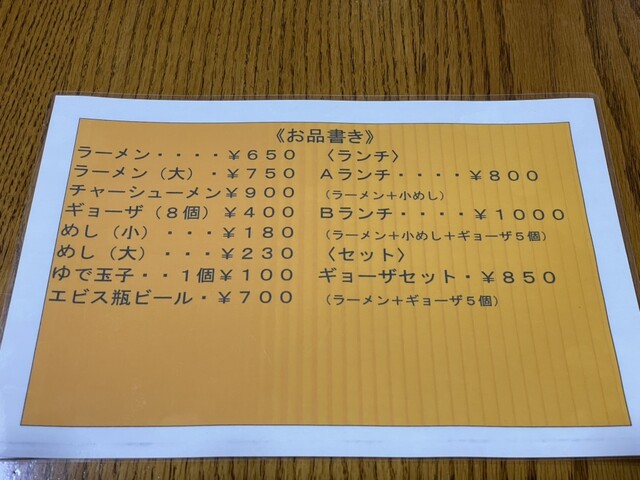 《お品書き》
ラーメン・・・・￥６５０
ラーメン（大）・￥７５０
チャーシューメン￥９００
ギョーザ（８個）￥４００
めし（小）・・・￥１８０
めし（大）・・・￥２３０
ゆで玉子・・１個￥１００
エビス瓶ビール・￥７００
〈ランチ〉
Ａランチ・・・・￥８００
（ラーメン＋小めし）
Ｂランチ・・・・￥１０００
（ラーメン＋小めし＋ギョーザ５個）
〈セット〉
ギョーザセット・￥８５０
（ラーメン＋ギョーザ５個）